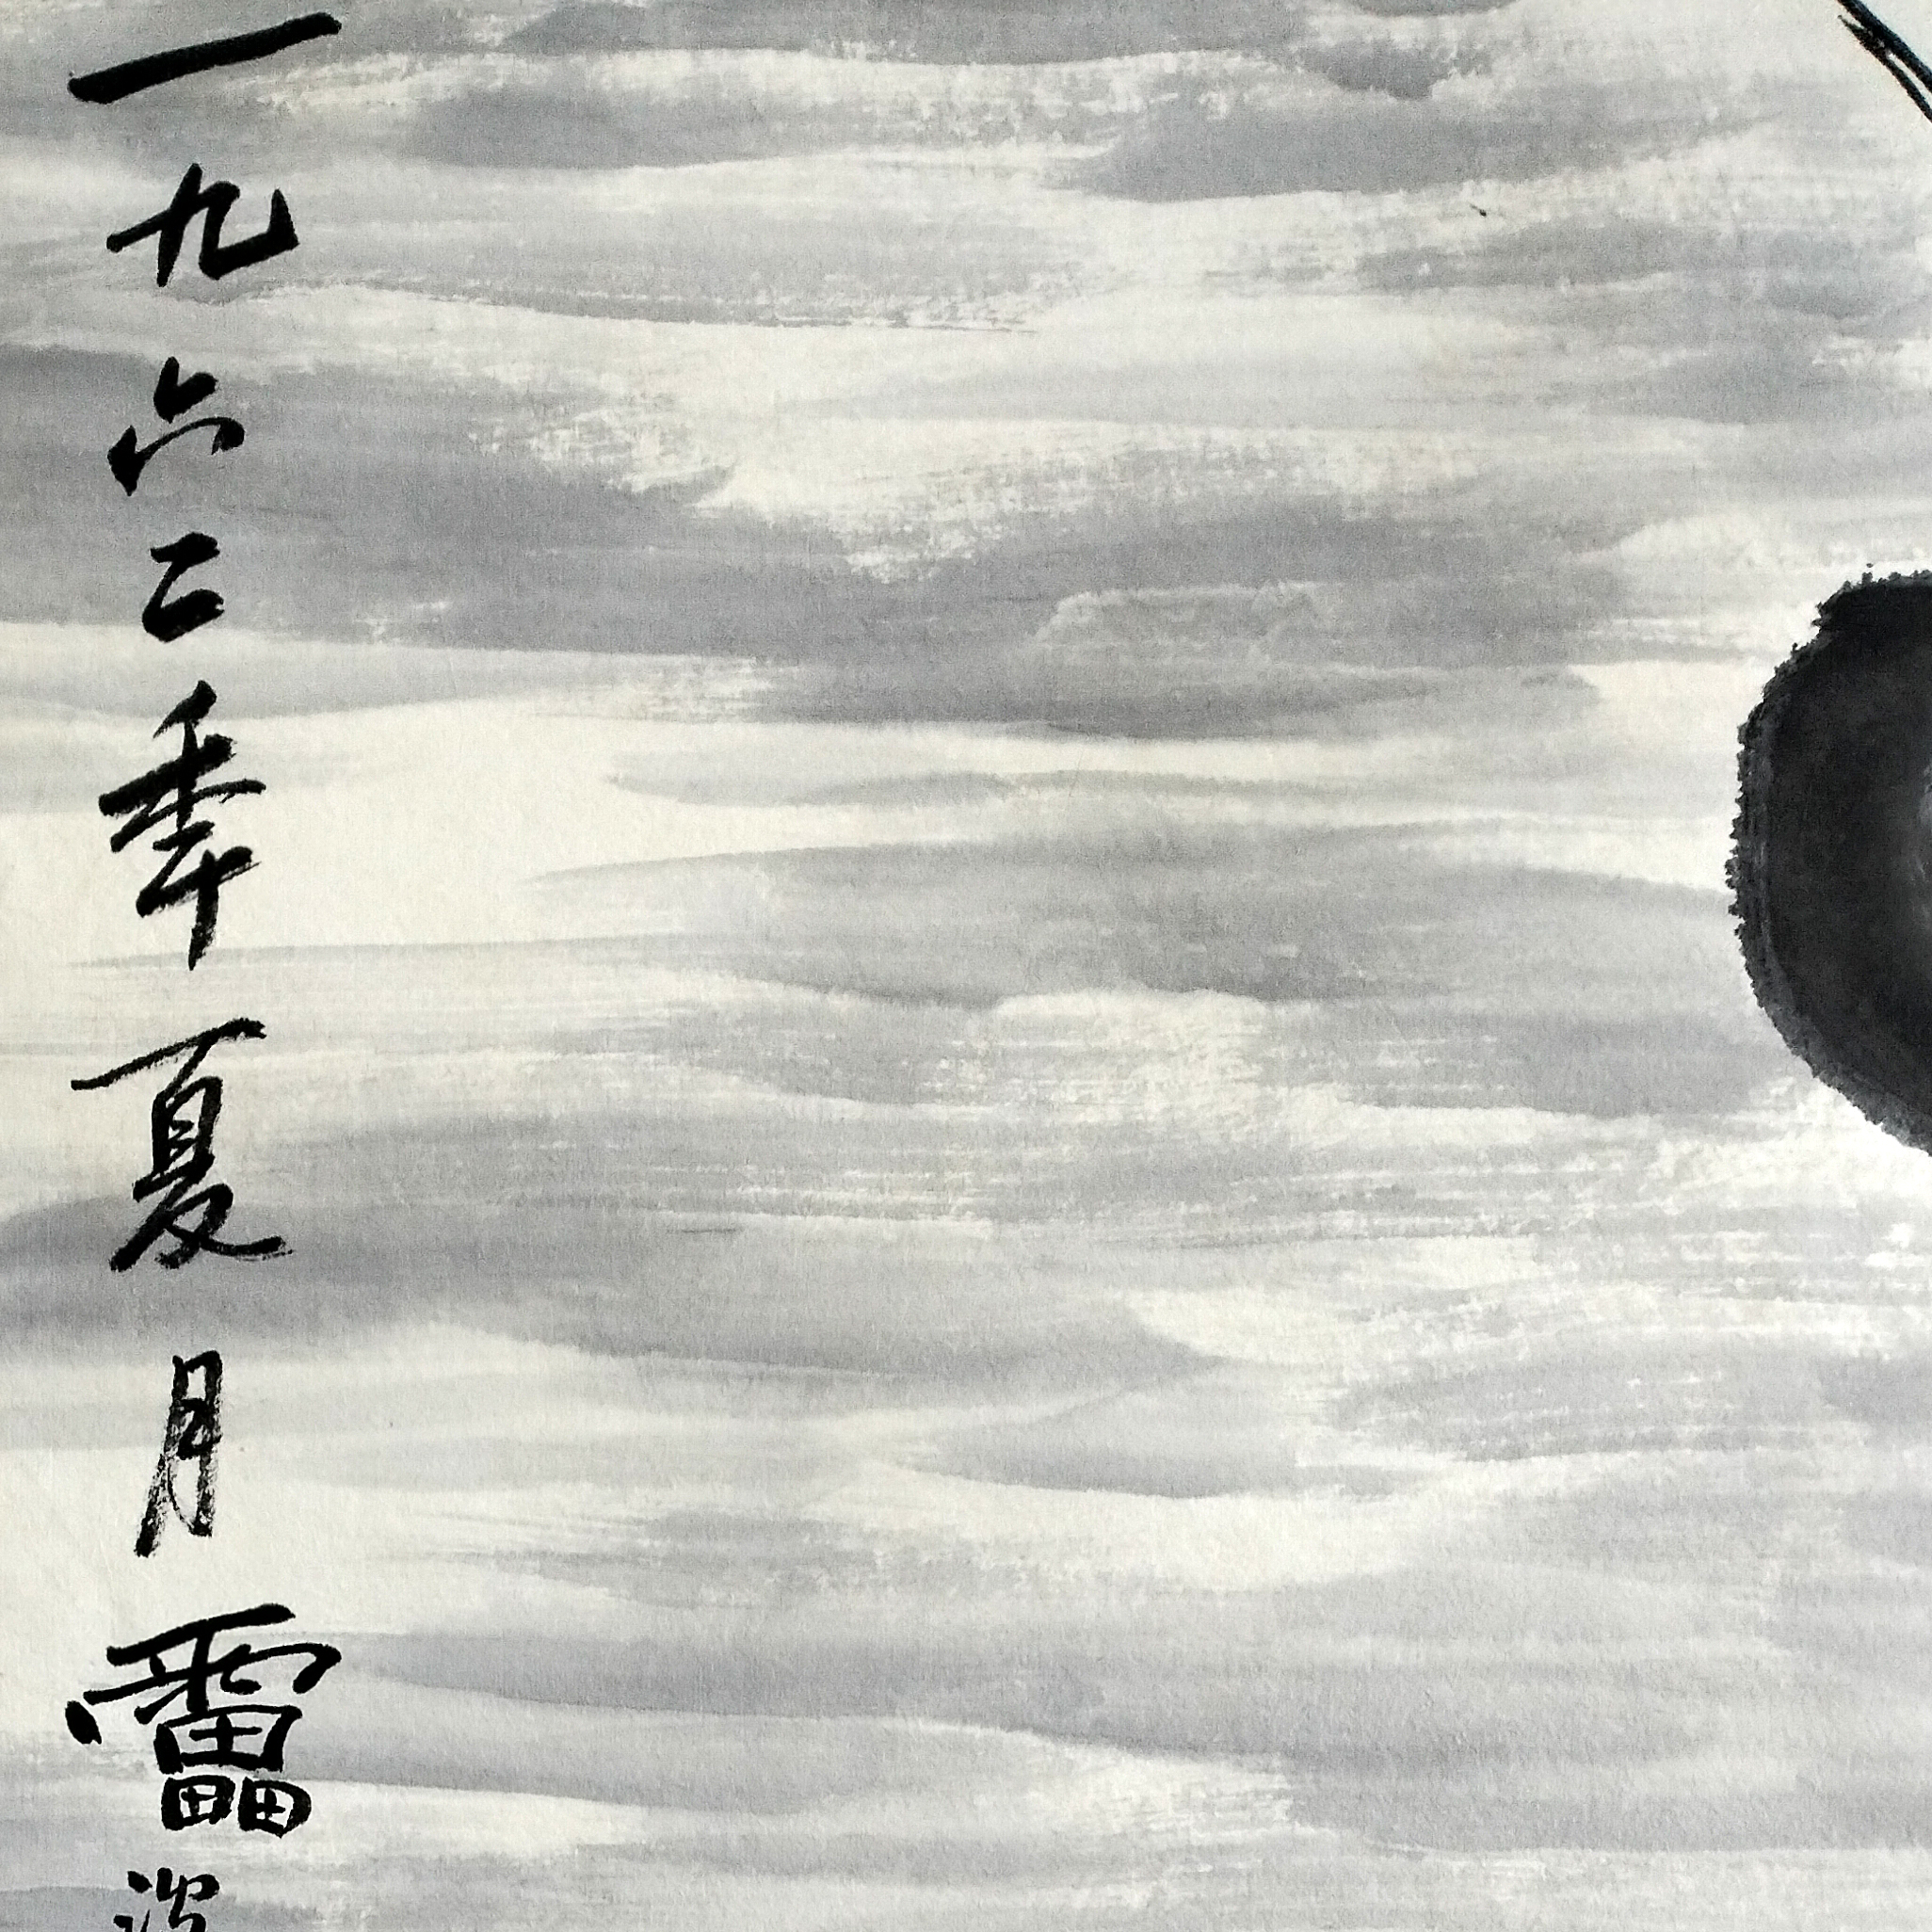 一九六二季夏月靁